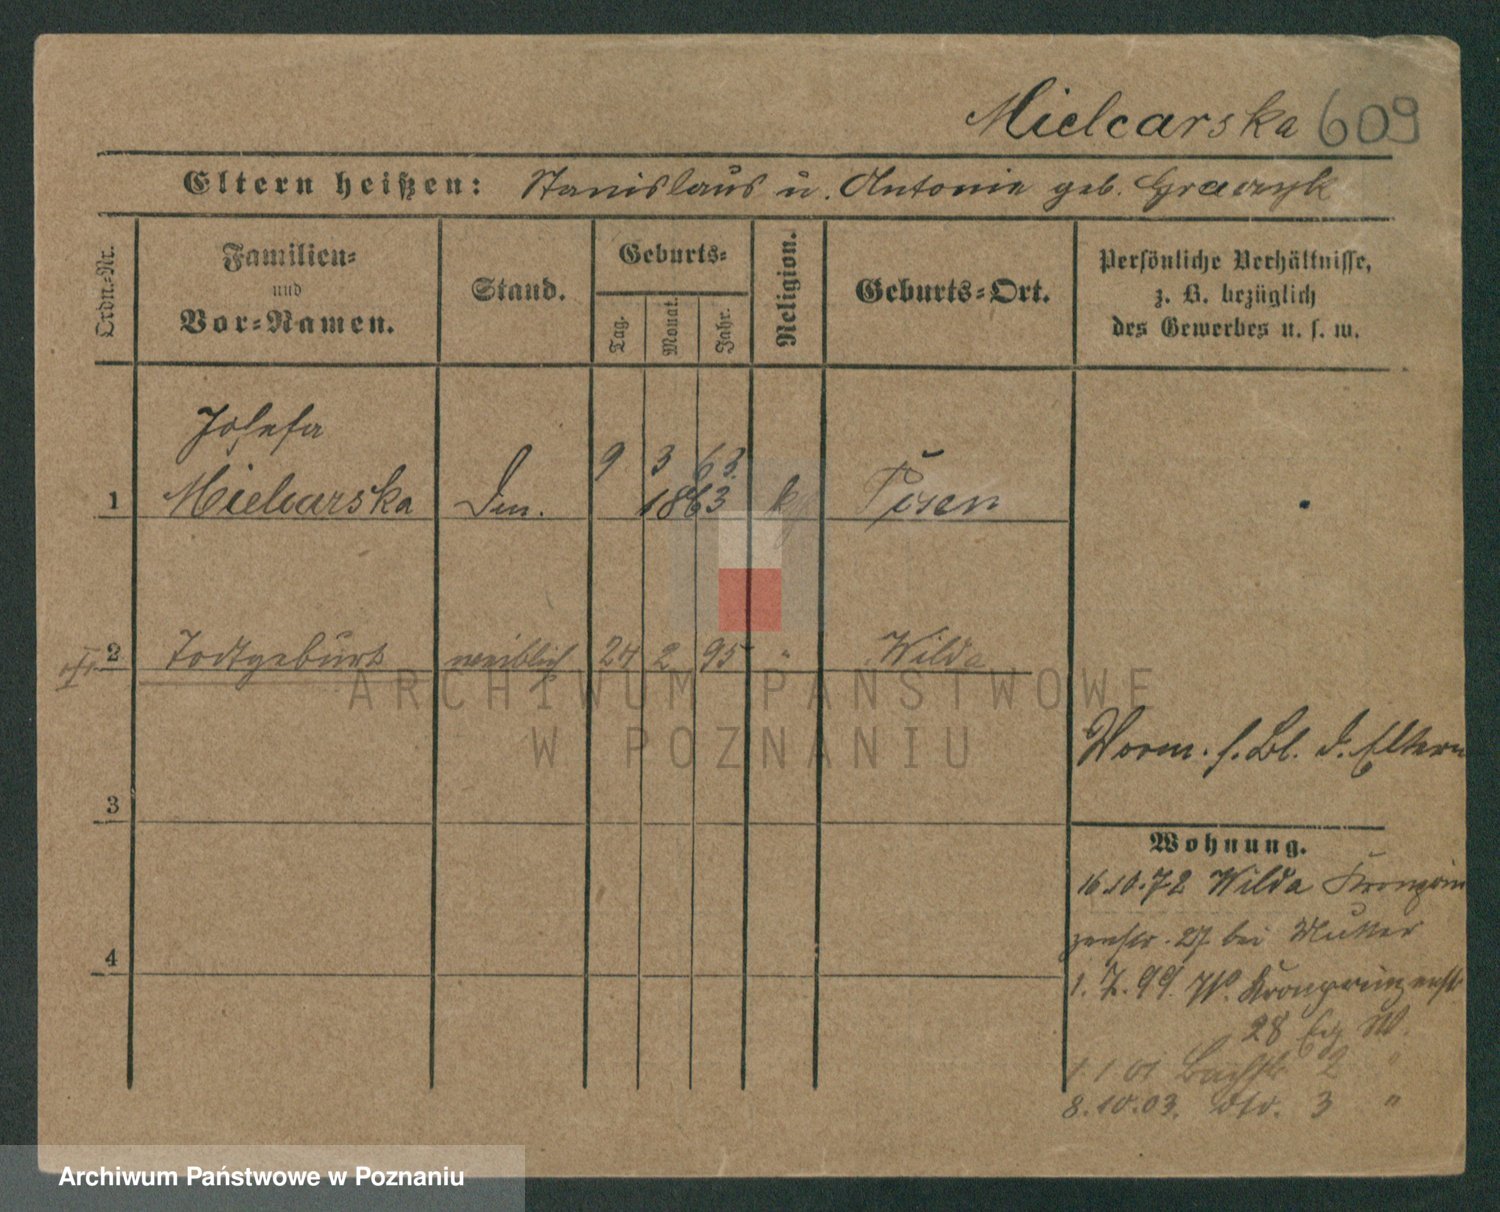 Mielcarska 609
Eltern heißen: Stanislaus u. Antonie geb. Graczyk
Ordn.-Nr.
Familien-
und
Vor-Namen.
Stand.
Geburts-
Tag.
Monat.
Jahr.
Religion.
Geburts-Ort.
Persönliche Verhältnisse,
z. B. bezüglich
des Gewerbes u. s. w.
Josefa
9 3 63.
1 Mielcarska 1863 k Posen
2 Todtgeburt weiblich 24 2 95 " Wilda
Vorm. s. Bl. d. Eltern
3
Wohnung.
16.10.72 Wilda Kronprin
zenstr. 27 bei Mutter
4
1.7.99. W. Kronprinzenstr
28 W.
1.1.01 Bachstr 2 "
8.10.03. dto. 3 "
ARCHIWUM PAŃSTWOWE
W POZNANIU
Archiwum Państwowe w Poznaniu